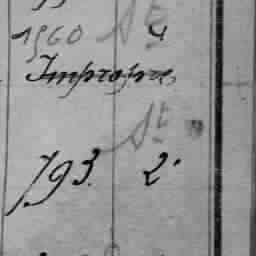 1960 St 4
Impropres
St
793. 2.